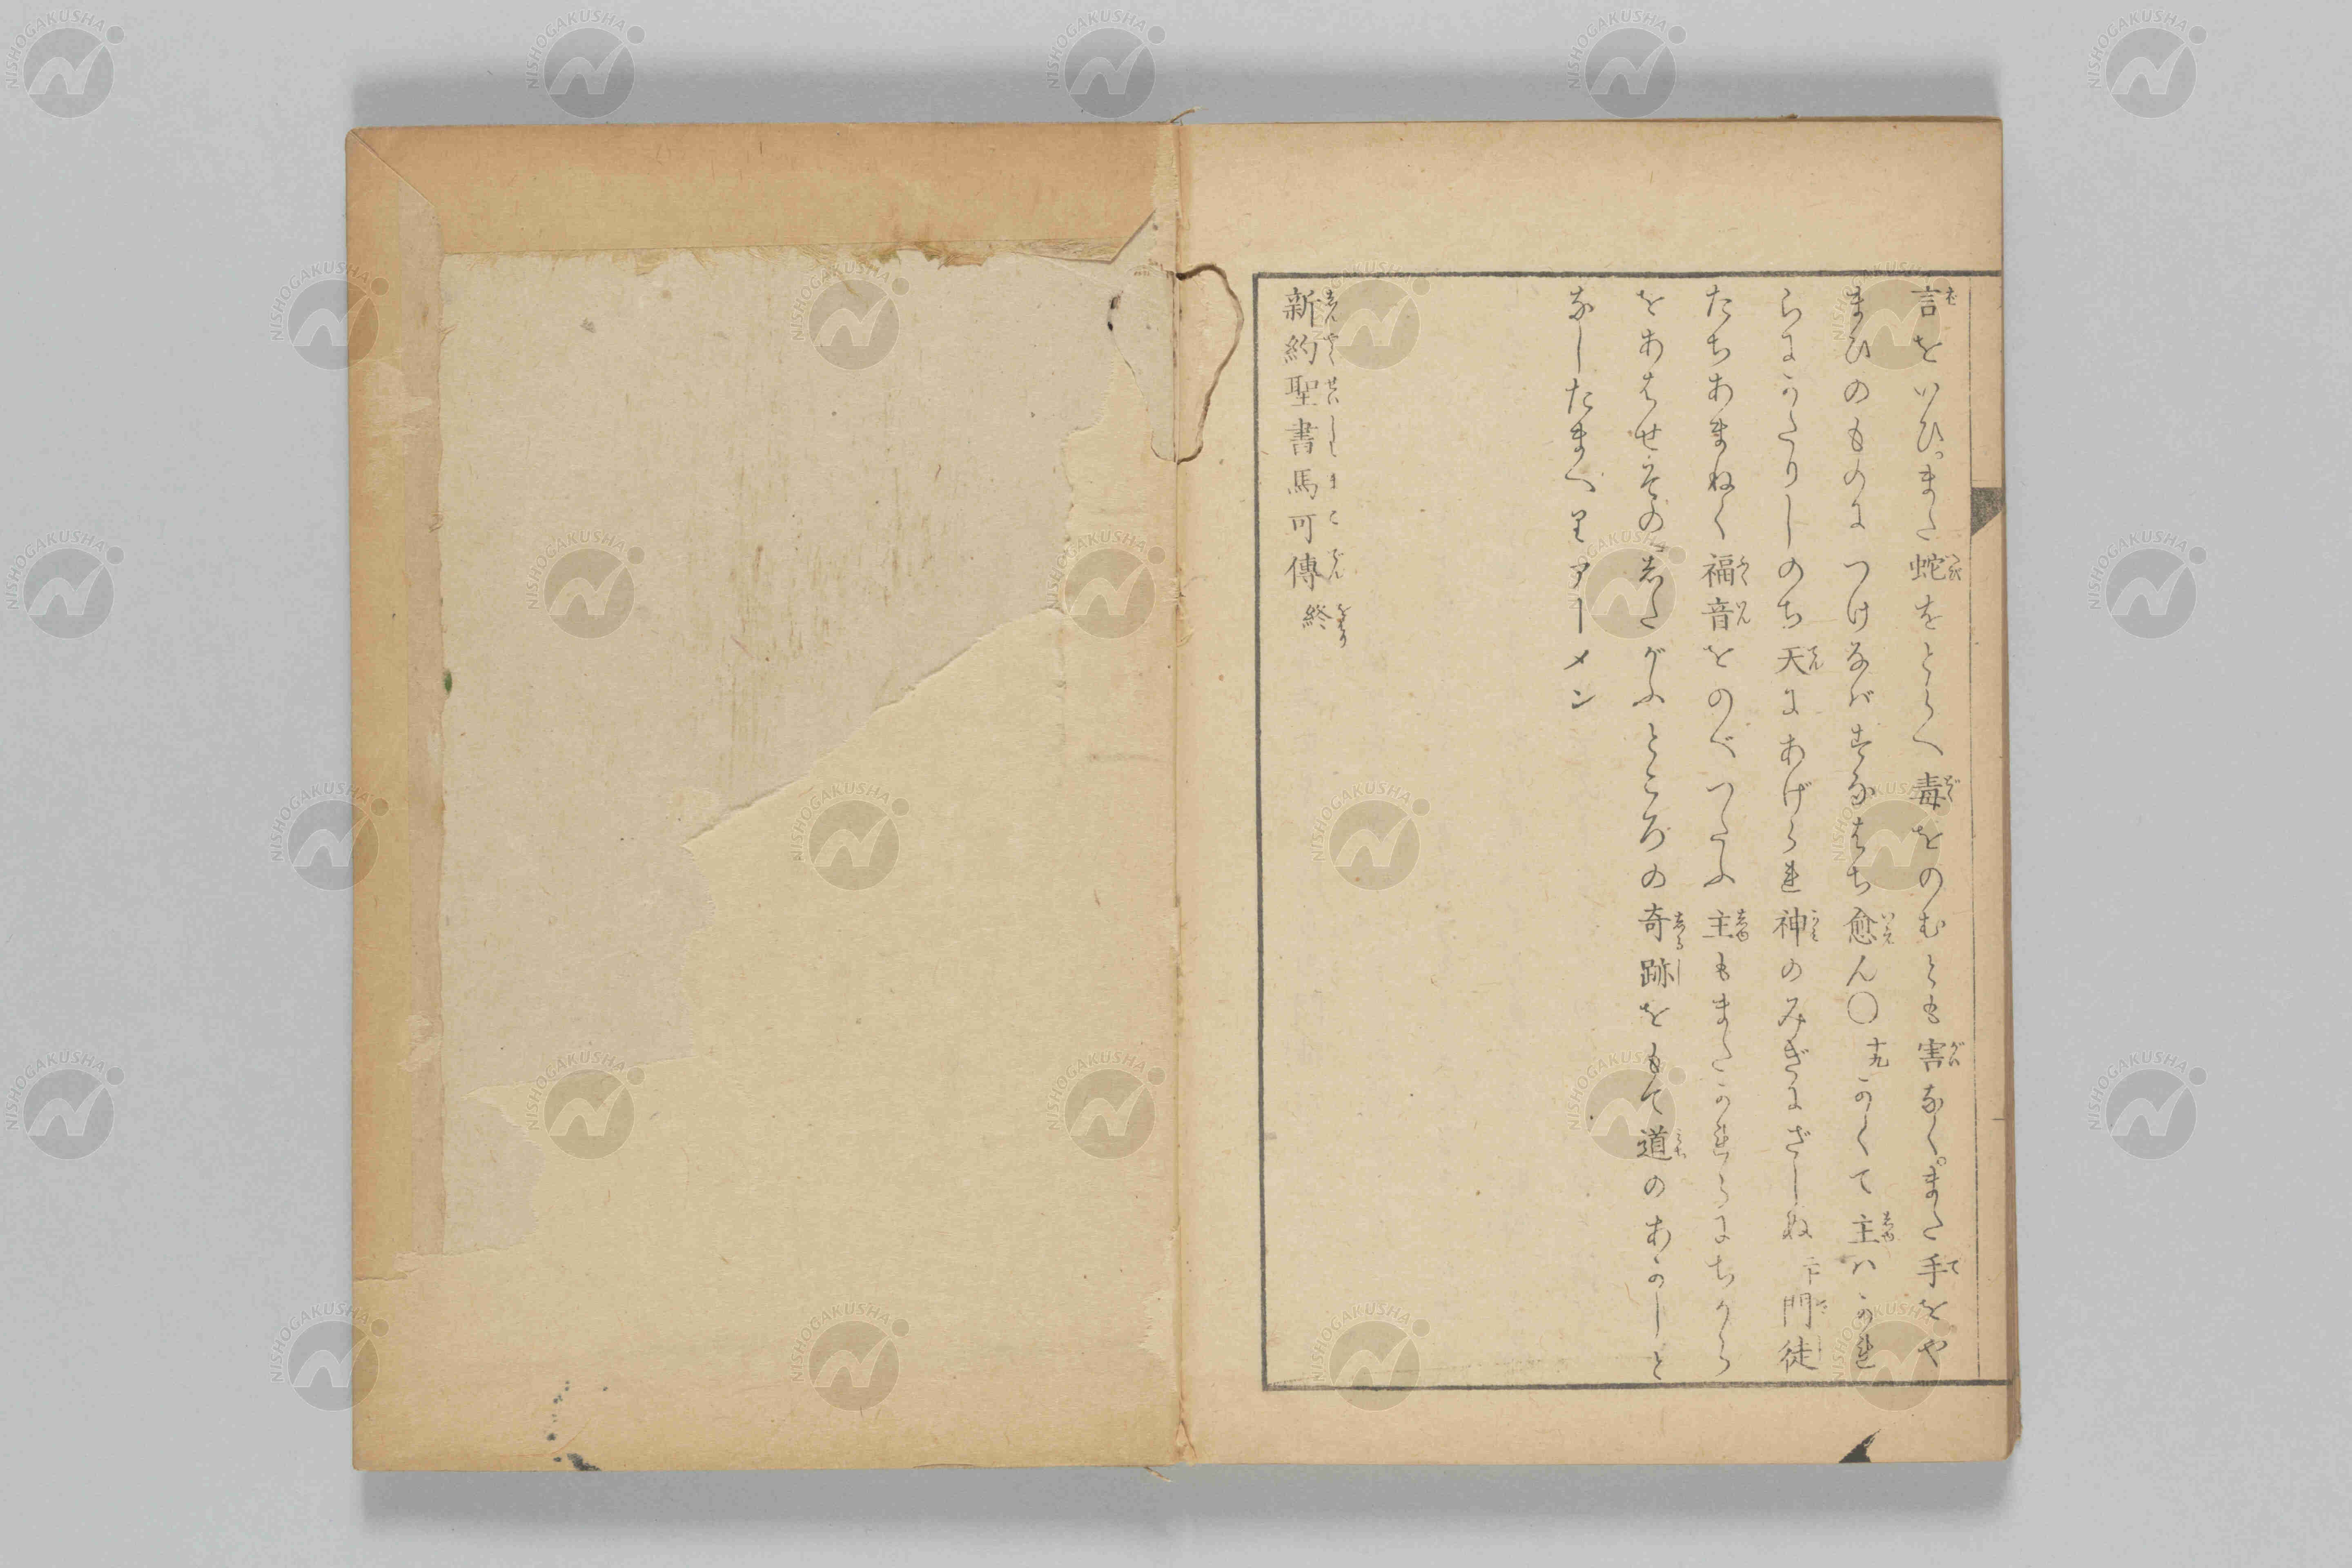 言をいひ。また蛇をとらへ毒をのむとも害なく。また手をや
まひのものにつけなばすなはち愈ん〇十九かくて主ハかれ
らにかたりしのち天にあげられ神のみぎにざしぬ二十門徒
たちあまねく福音をのべつたふ主もまたかれらにちから
をあはせそのしたがふところの奇跡をもて道のあかしと
なしたまへりアーメン
新約聖書馬可傳終